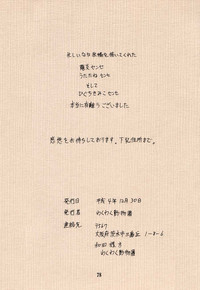 忙しいなか 原稿を 描いてくれた
センセ
うたたね センセ
そして
ひぐちきみこ センセ
本当に有難うございました
感想をお待ちしております。下記住所まで。
発行日 平成4年12月30日
発行者 わくわく動物園
連絡先
大阪府茨木市 1-8-6
わくわく動物園
28